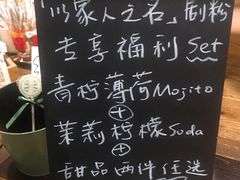 「以家人之名」劇粉
专享福利 Set
青柠薄荷Mojito
+
茉莉柠檬Soda
+
甜品两件任选